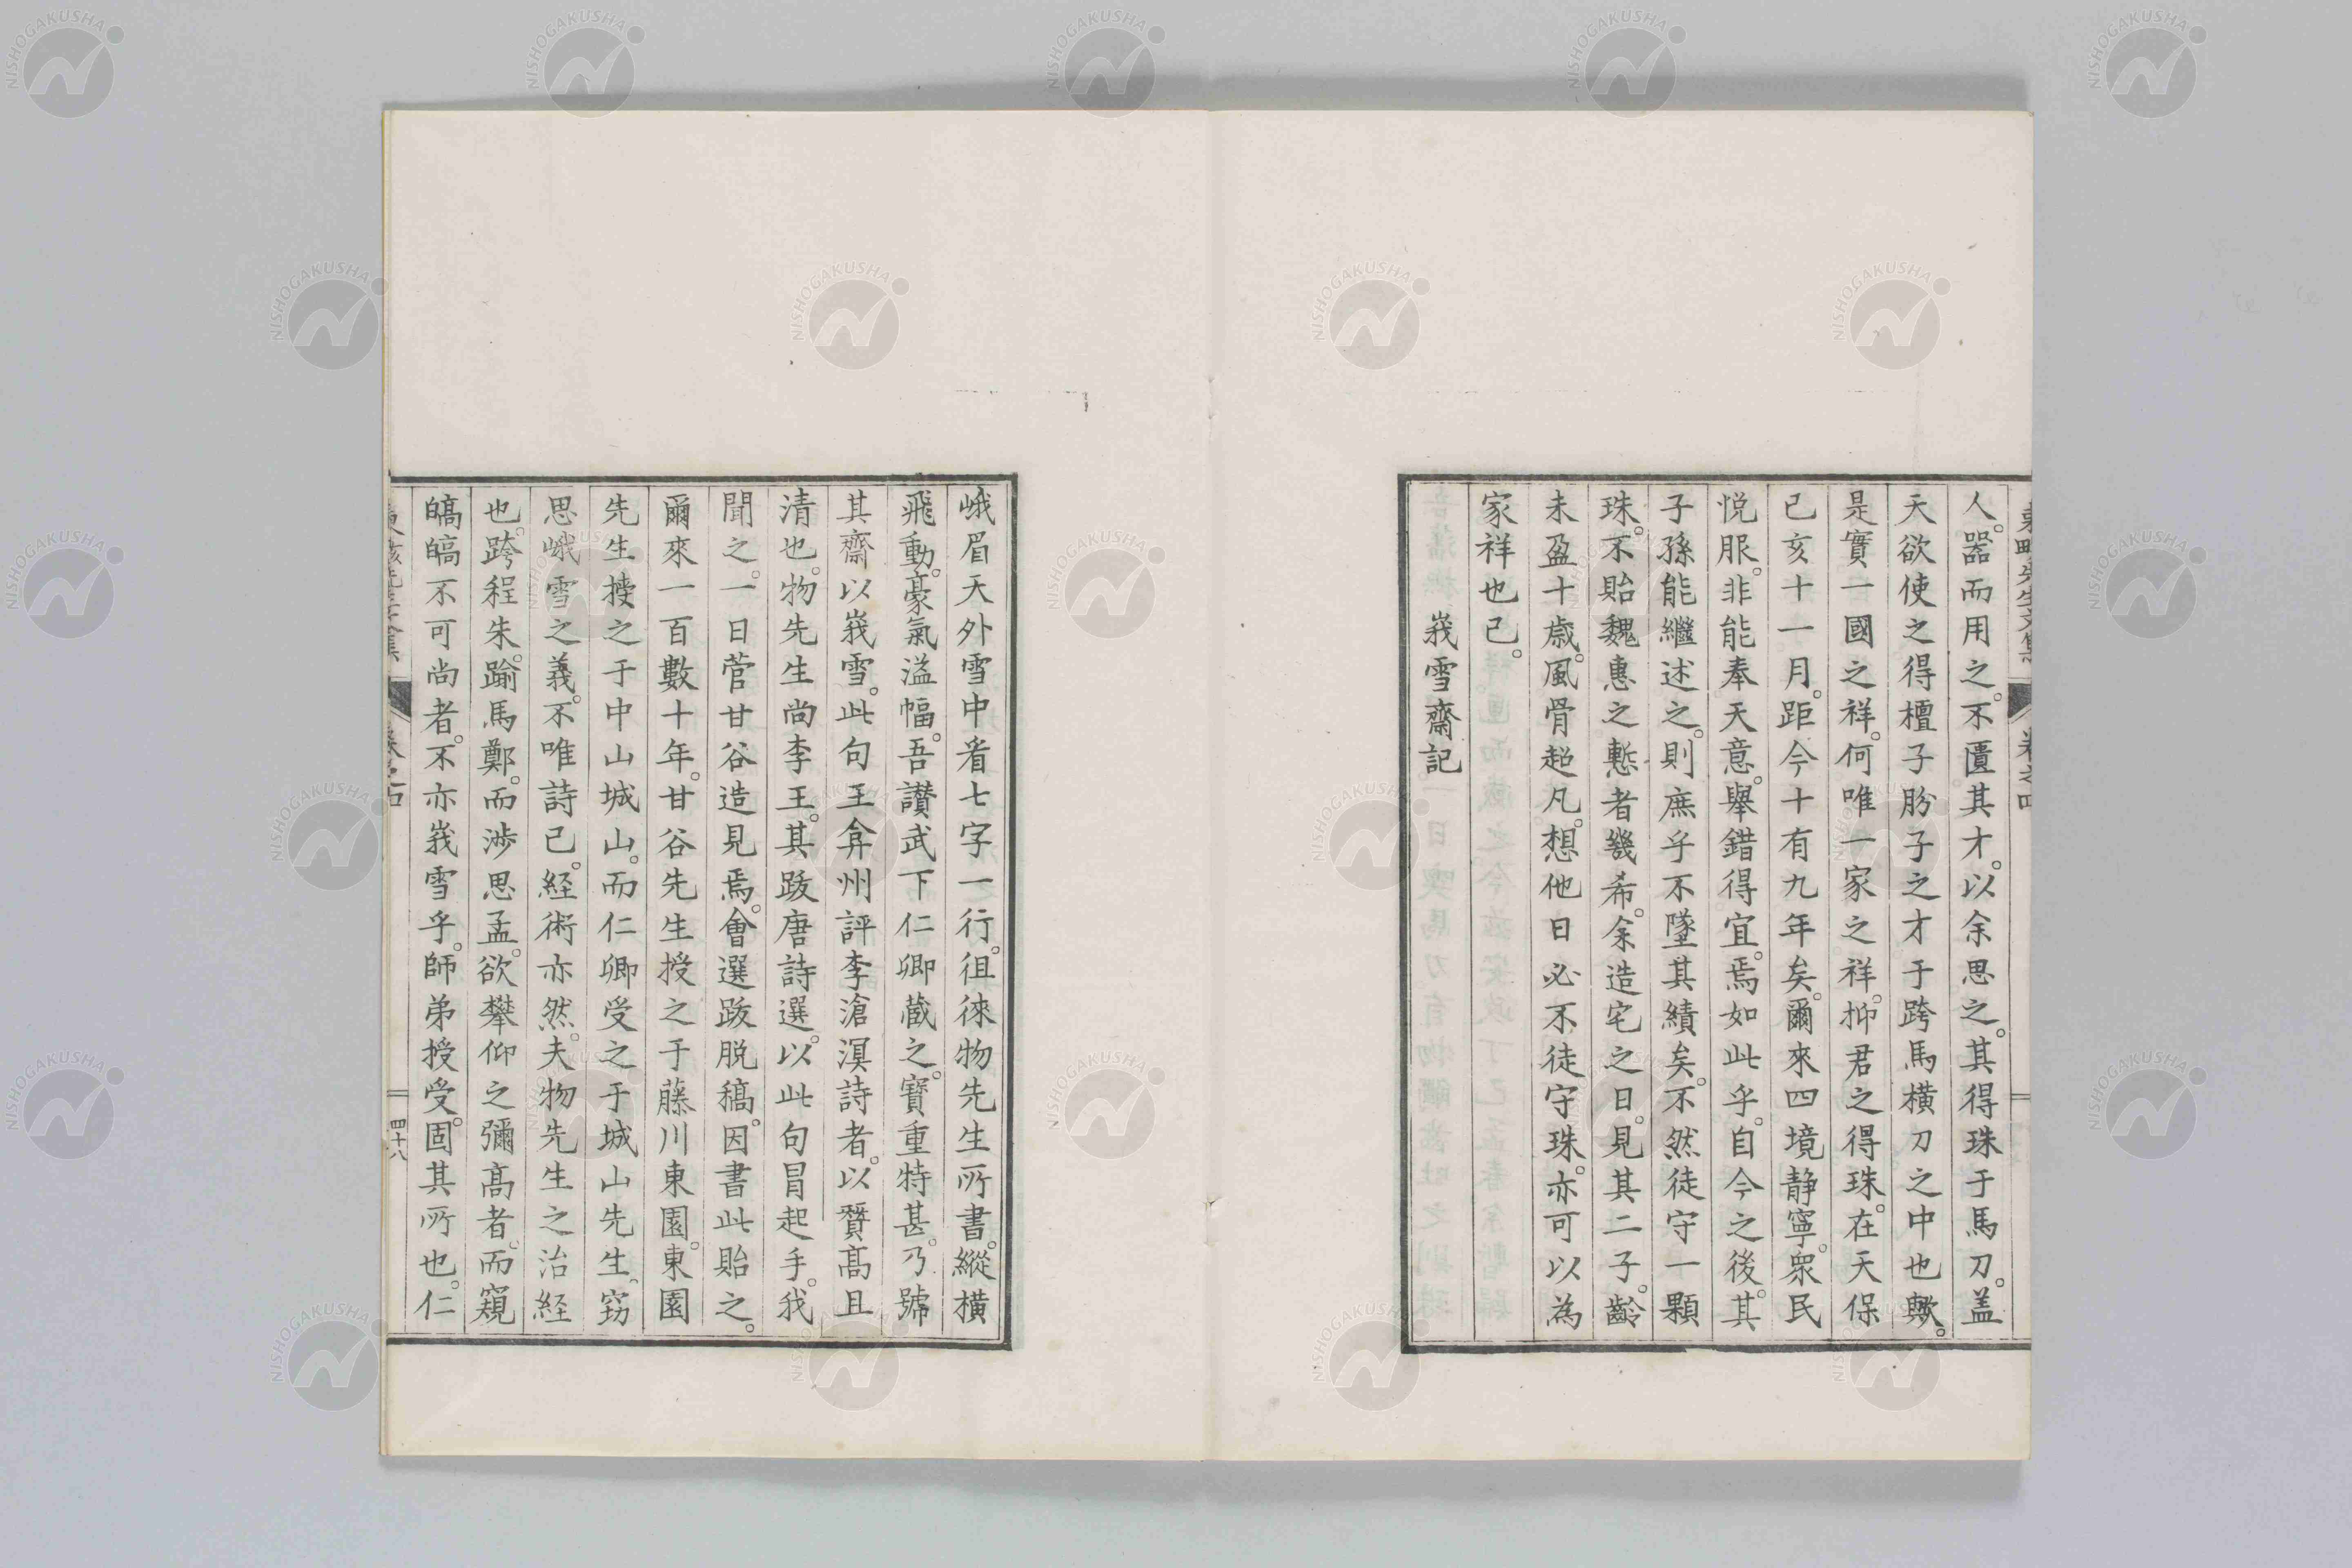 人。器而用之。不匱其才。以余思之。其得珠于馬刀。盖
天欲使之得檀子肦子之才于跨馬橫刀之中也歟。
是實一國之祥。何唯一家之祥。抑君之得珠。在天保
己亥十一月。距今十有九年矣。爾來四境静寧。衆民
悦服。非能奉天意。舉錯得宜。焉如此乎。自今之後。其
子孫能繼述之。則庶乎不墜其績矣。不然徒守一顆
珠。不貽魏惠之慙者幾希。余造宅之日。見其二子。齡
未盈十歳。風骨超凡。想他日必不徒守珠。亦可以為
家祥也已。
峩雪齋記
峨眉天外雪中看七字一行。徂徠物先生所書。縱橫
飛動。豪氣溢幅。吾讃武下仁卿蔵之。寶重特甚。乃號
其齋以峩雪。此句王弇州評李滄溟詩者。以贊髙且
清也。物先生尚李王。其跋唐詩選。以此句冒起手。我
聞之。一日菅甘谷造見焉。會選跋脱稿。因書此貽之。
爾來一百數十年。甘谷先生授之于藤川東園。東園
先生授之于中山城山。而仁卿受之于城山先生。窃
思峨雪之義。不唯詩已。経術亦然。夫物先生之治経
也。跨程朱。踰馬鄭。而渉思孟。欲攀仰之彌髙者。而窺
皜皜不可尚者。不亦峩雪乎。師弟授受。固其所也。仁
四十八
NISHOGAKUSHA